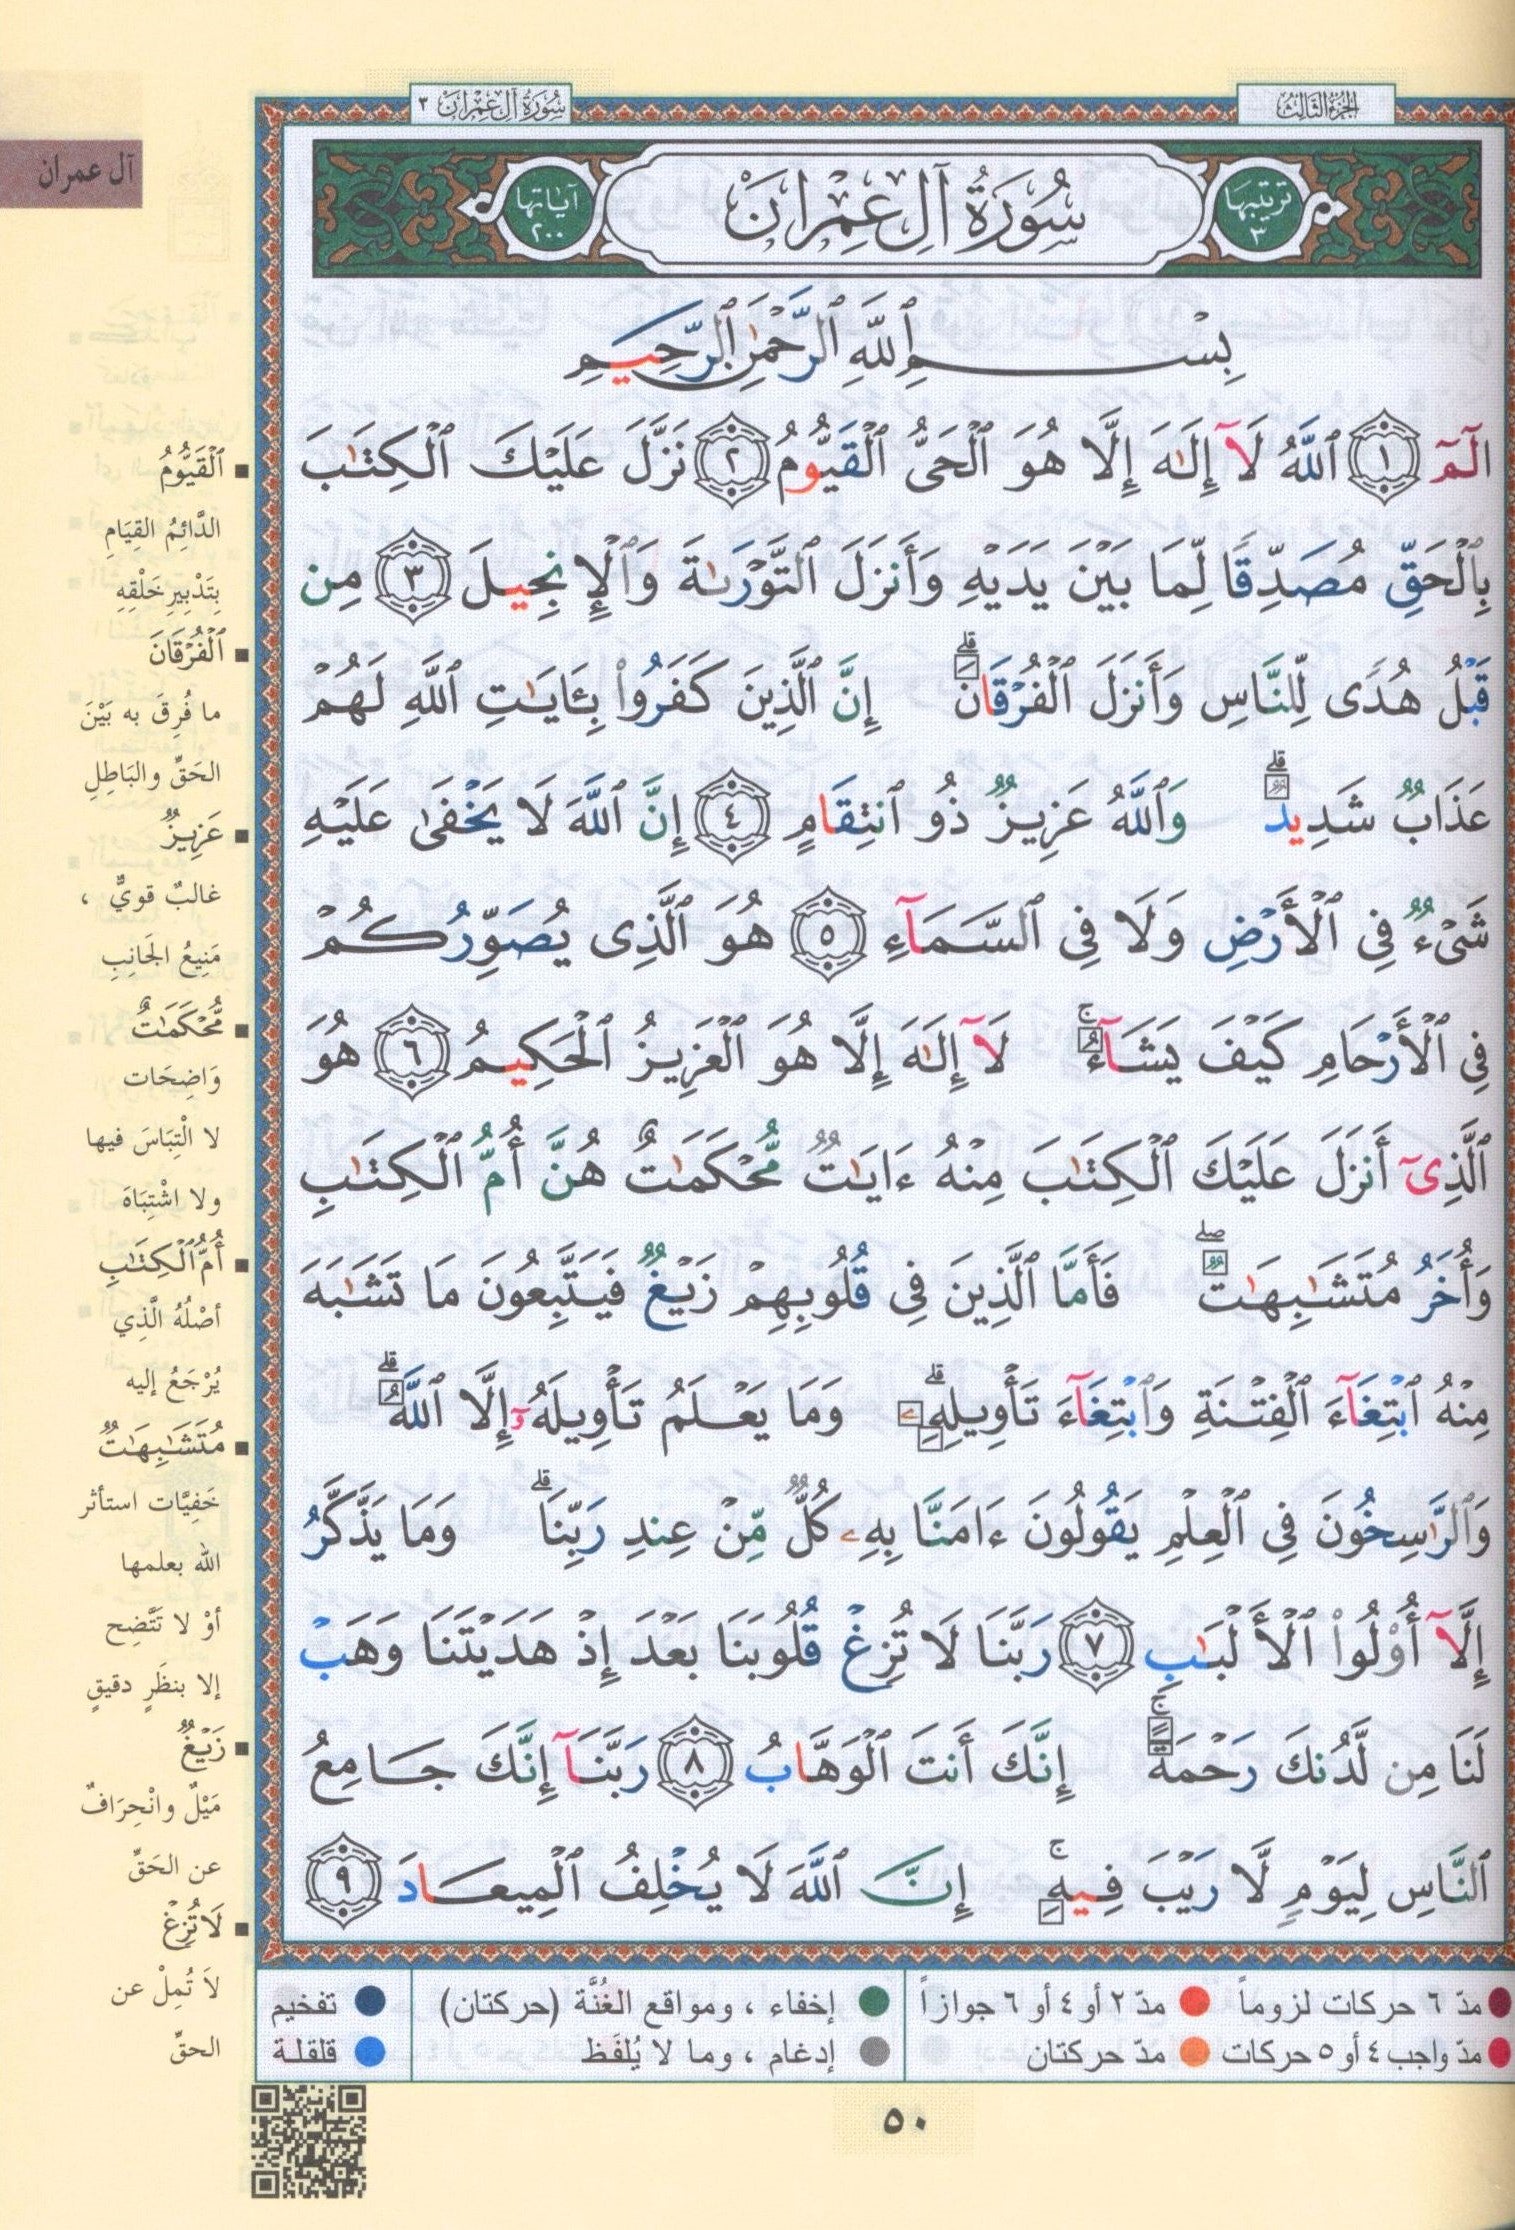 الجزء الثالث
سورة آل عمران ٣
آل عمران
ترتيبها ٣
سُورَةُ آلِ عِمْرَانَ
آياتها ٢٠٠
بِسْمِ ٱللَّهِ ٱلرَّحْمَٰنِ ٱلرَّحِيمِ
الٓمٓ ١ ٱللَّهُ لَآ إِلَٰهَ إِلَّا هُوَ ٱلْحَىُّ ٱلْقَيُّومُ ٢ نَزَّلَ عَلَيْكَ ٱلْكِتَٰبَ
بِٱلْحَقِّ مُصَدِّقًا لِّمَا بَيْنَ يَدَيْهِ وَأَنزَلَ ٱلتَّوْرَىٰةَ وَٱلْإِنجِيلَ ٣ مِن
قَبْلُ هُدًى لِّلنَّاسِ وَأَنزَلَ ٱلْفُرْقَانَ ۗ إِنَّ ٱلَّذِينَ كَفَرُوا۟ بِـَٔايَٰتِ ٱللَّهِ لَهُمْ
عَذَابٌ شَدِيدٌ ۗ وَٱللَّهُ عَزِيزٌ ذُو ٱنتِقَامٍ ٤ إِنَّ ٱللَّهَ لَا يَخْفَىٰ عَلَيْهِ
شَىْءٌ فِى ٱلْأَرْضِ وَلَا فِى ٱلسَّمَآءِ ٥ هُوَ ٱلَّذِى يُصَوِّرُكُمْ
فِى ٱلْأَرْحَامِ كَيْفَ يَشَآءُ ۚ لَآ إِلَٰهَ إِلَّا هُوَ ٱلْعَزِيزُ ٱلْحَكِيمُ ٦ هُوَ
ٱلَّذِىٓ أَنزَلَ عَلَيْكَ ٱلْكِتَٰبَ مِنْهُ ءَايَٰتٌ مُّحْكَمَٰتٌ هُنَّ أُمُّ ٱلْكِتَٰبِ
وَأُخَرُ مُتَشَٰبِهَٰتٌ ۖ فَأَمَّا ٱلَّذِينَ فِى قُلُوبِهِمْ زَيْغٌ فَيَتَّبِعُونَ مَا تَشَٰبَهَ
مِنْهُ ٱبْتِغَآءَ ٱلْفِتْنَةِ وَٱبْتِغَآءَ تَأْوِيلِهِۦ ۗ وَمَا يَعْلَمُ تَأْوِيلَهُۥٓ إِلَّا ٱللَّهُ ۗ
وَٱلرَّٰسِخُونَ فِى ٱلْعِلْمِ يَقُولُونَ ءَامَنَّا بِهِۦ كُلٌّ مِّنْ عِندِ رَبِّنَا ۗ وَمَا يَذَّكَّرُ
إِلَّآ أُو۟لُوا۟ ٱلْأَلْبَٰبِ ٧ رَبَّنَا لَا تُزِغْ قُلُوبَنَا بَعْدَ إِذْ هَدَيْتَنَا وَهَبْ
لَنَا مِن لَّدُنكَ رَحْمَةً ۚ إِنَّكَ أَنتَ ٱلْوَهَّابُ ٨ رَبَّنَآ إِنَّكَ جَامِعُ
ٱلنَّاسِ لِيَوْمٍ لَّا رَيْبَ فِيهِ ۚ إِنَّ ٱللَّهَ لَا يُخْلِفُ ٱلْمِيعَادَ ٩
▪ ٱلْقَيُّومُ
الدَّائِمُ القِيَامِ
بِتَدْبِيرِ خَلْقِهِ
▪ ٱلْفُرْقَانَ
ما فُرِقَ به بَيْنَ
الحَقِّ والبَاطِلِ
▪ عَزِيزٌ
غالبٌ قويٌّ ،
مَنِيعُ الجَانِبِ
▪ مُّحْكَمَٰتٌ
وَاضِحَات
لا الْتِبَاسَ فيها
ولا اشْتِبَاهَ
▪ أُمُّ ٱلْكِتَٰبِ
أصْلُهُ الَّذِي
يُرْجَعُ إليه
▪ مُتَشَٰبِهَٰتٌ
خَفِيَّات استأثر
الله بعلمها
أوْ لا تَتَّضِح
إلا بنظَرٍ دقيقٍ
▪ زَيْغٌ
مَيْلٌ وانْحِرَافٌ
عن الحَقِّ
▪ لَا تُزِغْ
لاَ تُمِلْ عن
الحقِّ
مدّ ٦ حركات لزوماً ● مدّ ٢ أو ٤ أو ٦ جوازاً ● إخفاء ، ومواقع الغُنَّة (حركتان) ● تفخيم
مدّ واجب ٤ أو ٥ حركات ● مدّ حركتان ● إدغام ، وما لا يُلفَظ ● قلقلة
٥٠